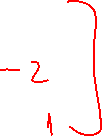 -2
1